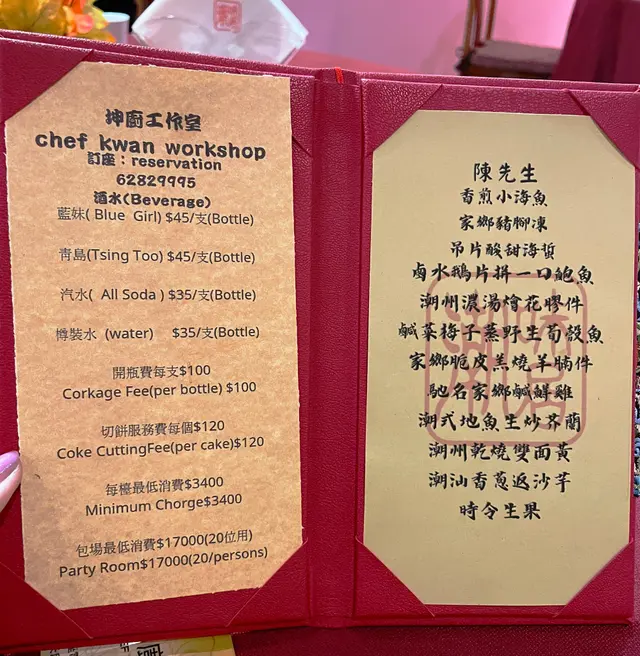 坤廚工作室
chef kwan workshop
訂座：reservation
62829995
酒水(Beverage)
藍妹( Blue Girl) $45/支(Bottle)
青島(Tsing Too) $45/支(Bottle)
汽水( All Soda ) $35/支(Bottle)
樽裝水 (water) $35/支(Bottle)
開瓶費每支$100
Corkage Fee(per bottle) $100
切餅服務費每個$120
Coke CuttingFee(per cake)$120
每檯最低消費$3400
Minimum Chorge$3400
包場最低消費$17000(20位用)
Party Room$17000(20/persons)
陳先生
香煎小海魚
家鄉豬腳凍
吊片酸甜海蜇
鹵水鵝片拼一口鮑魚
潮州濃湯燴花膠件
鹹菜梅子蒸野生荀殼魚
家鄉脆皮羔燒羊腩件
馳名家鄉鹹鮮雞
潮式地魚生炒芥蘭
潮州乾燒雙面黃
潮汕香蔥返沙芋
時令生果